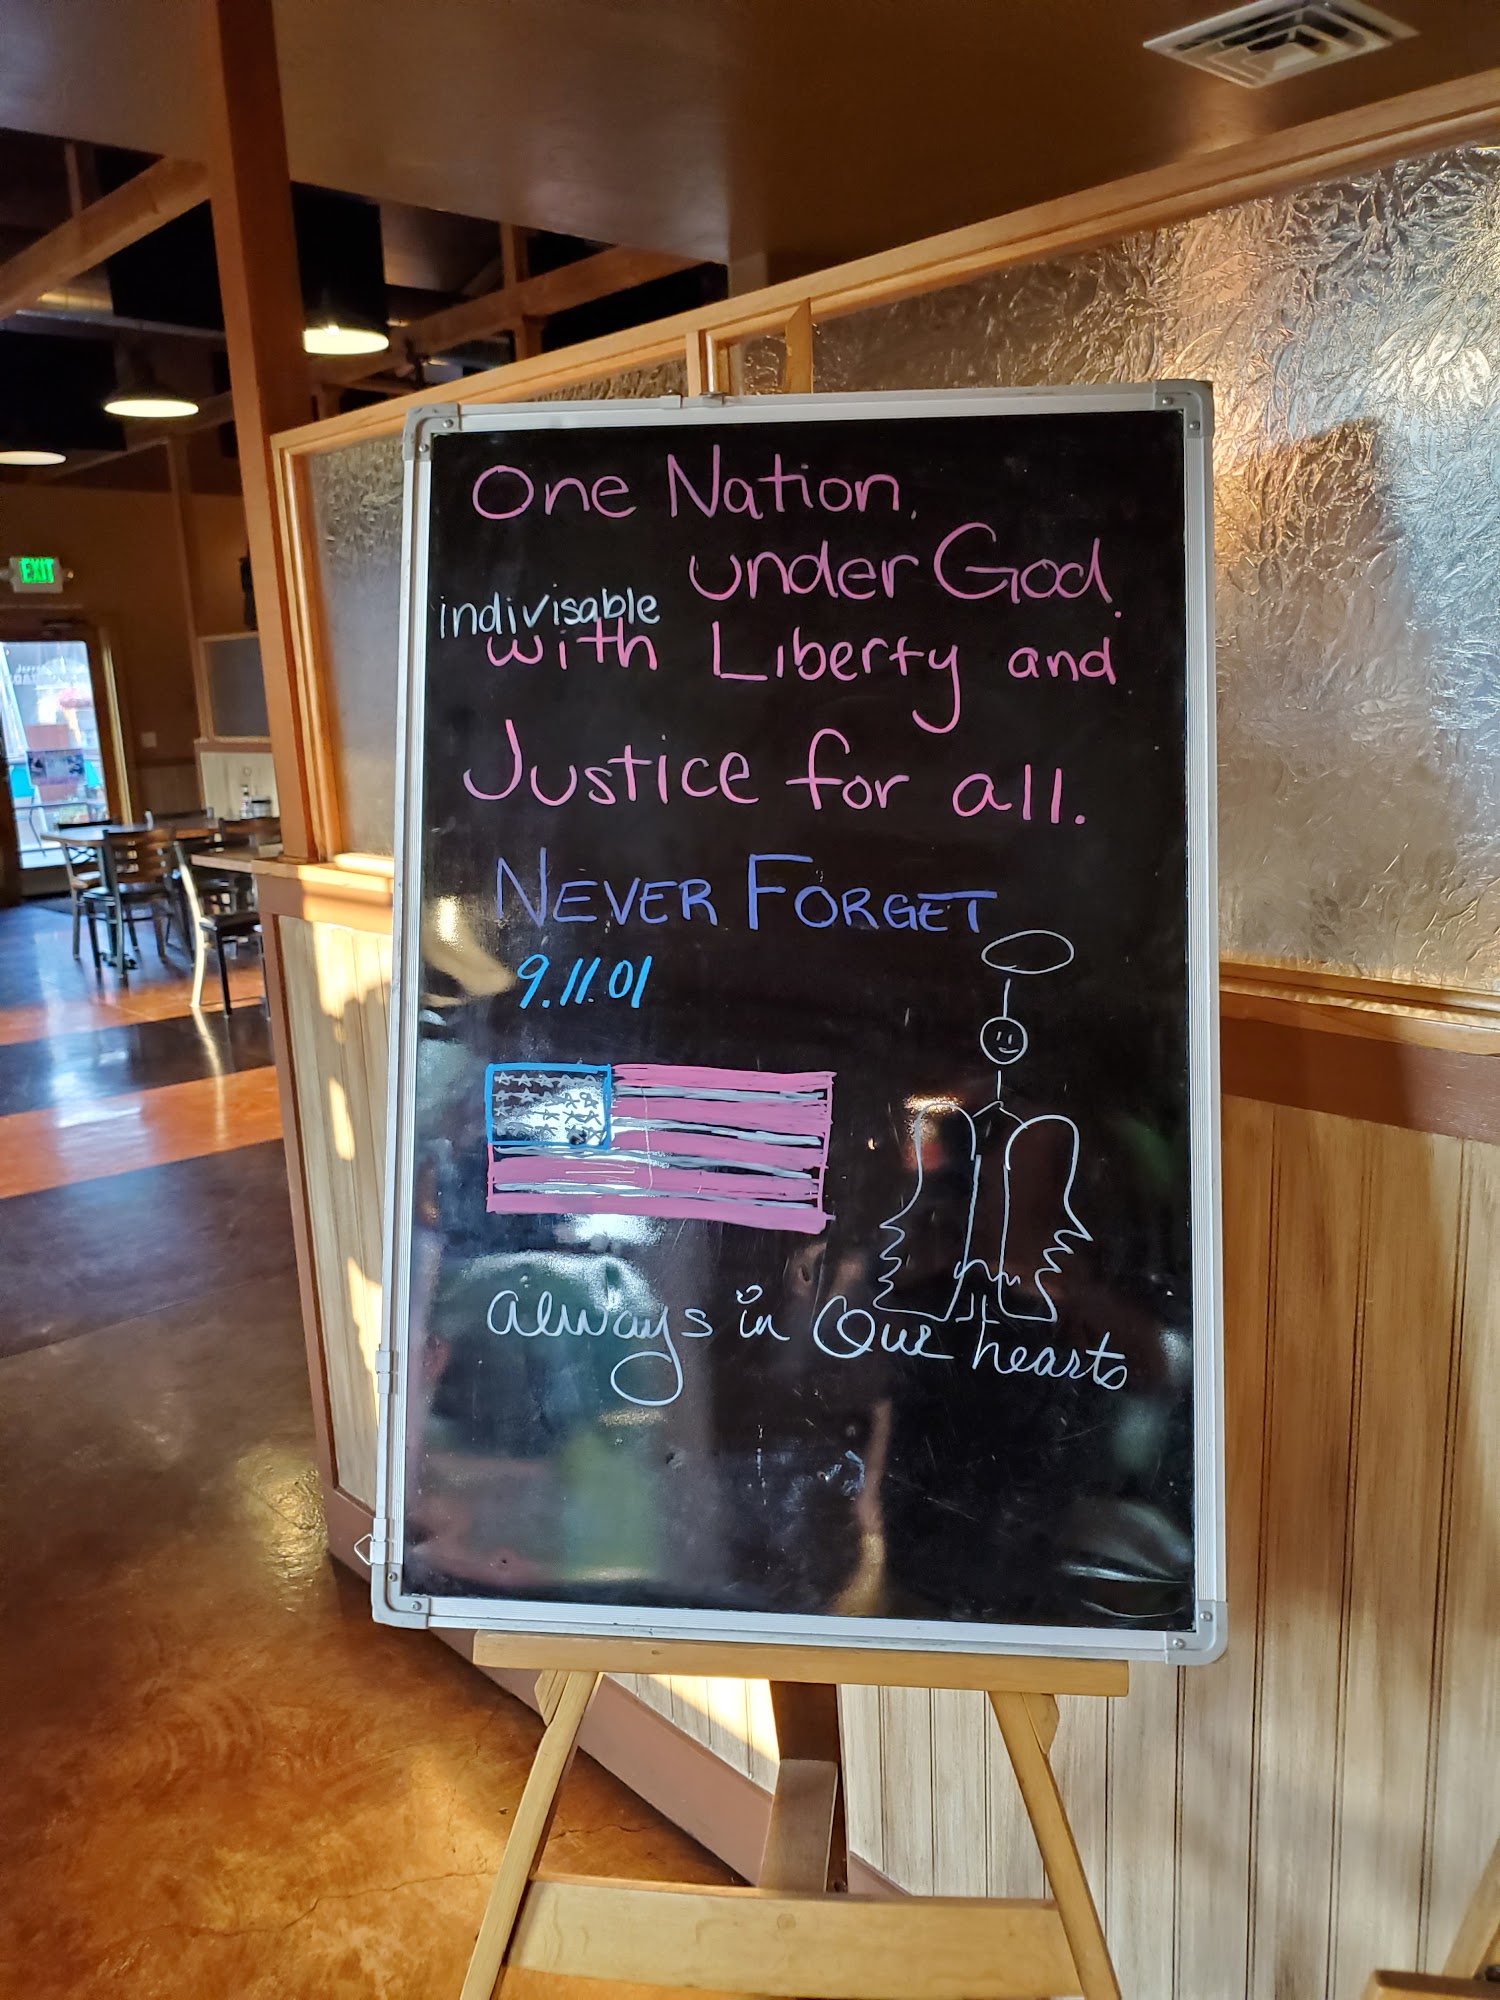 EXIT
One Nation,
under God,
indivisable
with Liberty and
Justice for all.
NEVER FORGET
9.11.01
always in Our hearts